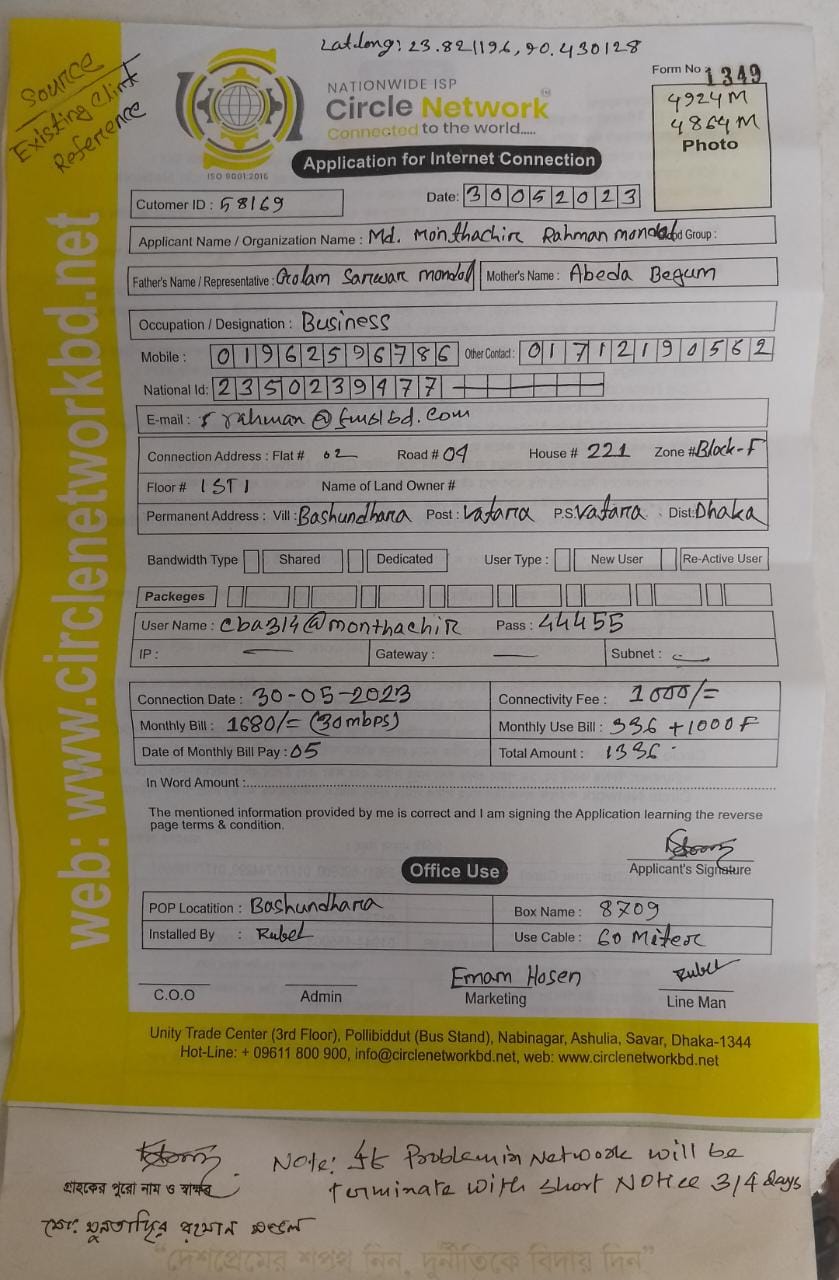 Lat long: 23.821196, 90.430128
Source
Existing Clint
Reference
NATIONWIDE ISP
Circle Network
Connected to the world.....
ISO 9001:2016
Form No 1349
4924 M
4864 M
Photo
Application for Internet Connection
Cutomer ID : 58169
Date: 30052023
Applicant Name / Organization Name : Md. Monthachir Rahman mondol d Group :
Father's Name / Representative : Golam Sarewar mondol Mother's Name : Abeda Begum
Occupation / Designation : Business
Mobile : 01962596786 Other Contact : 01712190562
National Id: 2350239477
E-mail : rahman@fmslbd.com
Connection Address : Flat # 02 Road # 04 House # 221 Zone # Block-F
Floor # 1ST Name of Land Owner #
Permanent Address : Vill : Bashundhara Post : Vatara P.S. Vatara Dist: Dhaka
Bandwidth Type Shared Dedicated User Type : New User Re-Active User
Packeges
User Name : cba314@monthachir Pass : 44455
IP : — Gateway : — Subnet : —
Connection Date : 30-05-2023 Connectivity Fee : 1000/=
Monthly Bill : 1680/= (30mbps) Monthly Use Bill : 336 + 1000 F
Date of Monthly Bill Pay : 05 Total Amount : 1336
In Word Amount :
The mentioned information provided by me is correct and I am signing the Application learning the reverse
page terms & condition.
Applicant's Signature
Office Use
POP Locatition : Bashundhara Box Name : 8709
Installed By : Rubel Use Cable : 60 Miter
C.O.O
Admin
Emam Hosen
Marketing
Rubel
Line Man
Unity Trade Center (3rd Floor), Pollibiddut (Bus Stand), Nabinagar, Ashulia, Savar, Dhaka-1344
Hot-Line: + 09611 800 900, info@circlenetworkbd.net, web: www.circlenetworkbd.net
web: www.circlenetworkbd.net
Note: If Problem in Network will be
terminate with short Notice 3/4 days
গ্রাহকের পুরো নাম ও স্বাক্ষর
মো: মুনতাছির রহমান মন্ডল
"দেশপ্রেমের শপথ নিন, দুর্নীতিকে বিদায় দিন"